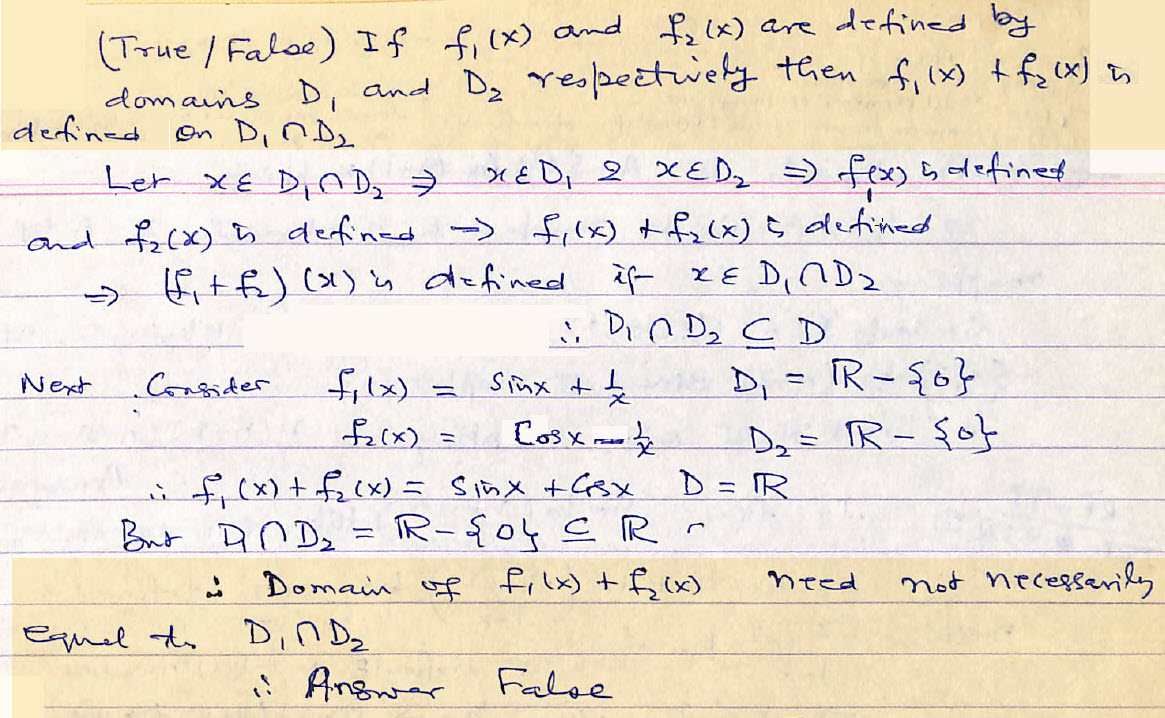 (True / False) If f₁(x) and f₂(x) are defined by
domains D₁ and D₂ respectively then f₁(x) + f₂(x) is
defined on D₁ ∩ D₂
Let x ∈ D₁ ∩ D₂ ⇒ x ∈ D₁ & x ∈ D₂ ⇒ f₁(x) is defined
and f₂(x) is defined → f₁(x) + f₂(x) is defined
⇒ (f₁ + f₂) (x) is defined if x ∈ D₁ ∩ D₂
∴ D₁ ∩ D₂ ⊆ D
Next Consider f₁(x) = Sinx + 1/x D₁ = ℝ - {0}
f₂(x) = Cosx - 1/x D₂ = ℝ - {0}
∴ f₁(x) + f₂(x) = Sinx + Cosx D = ℝ
But D₁ ∩ D₂ = ℝ - {0} ⊆ ℝ
∴ Domain of f₁(x) + f₂(x) need not necessarily
equal to D₁ ∩ D₂
∴ Answer False